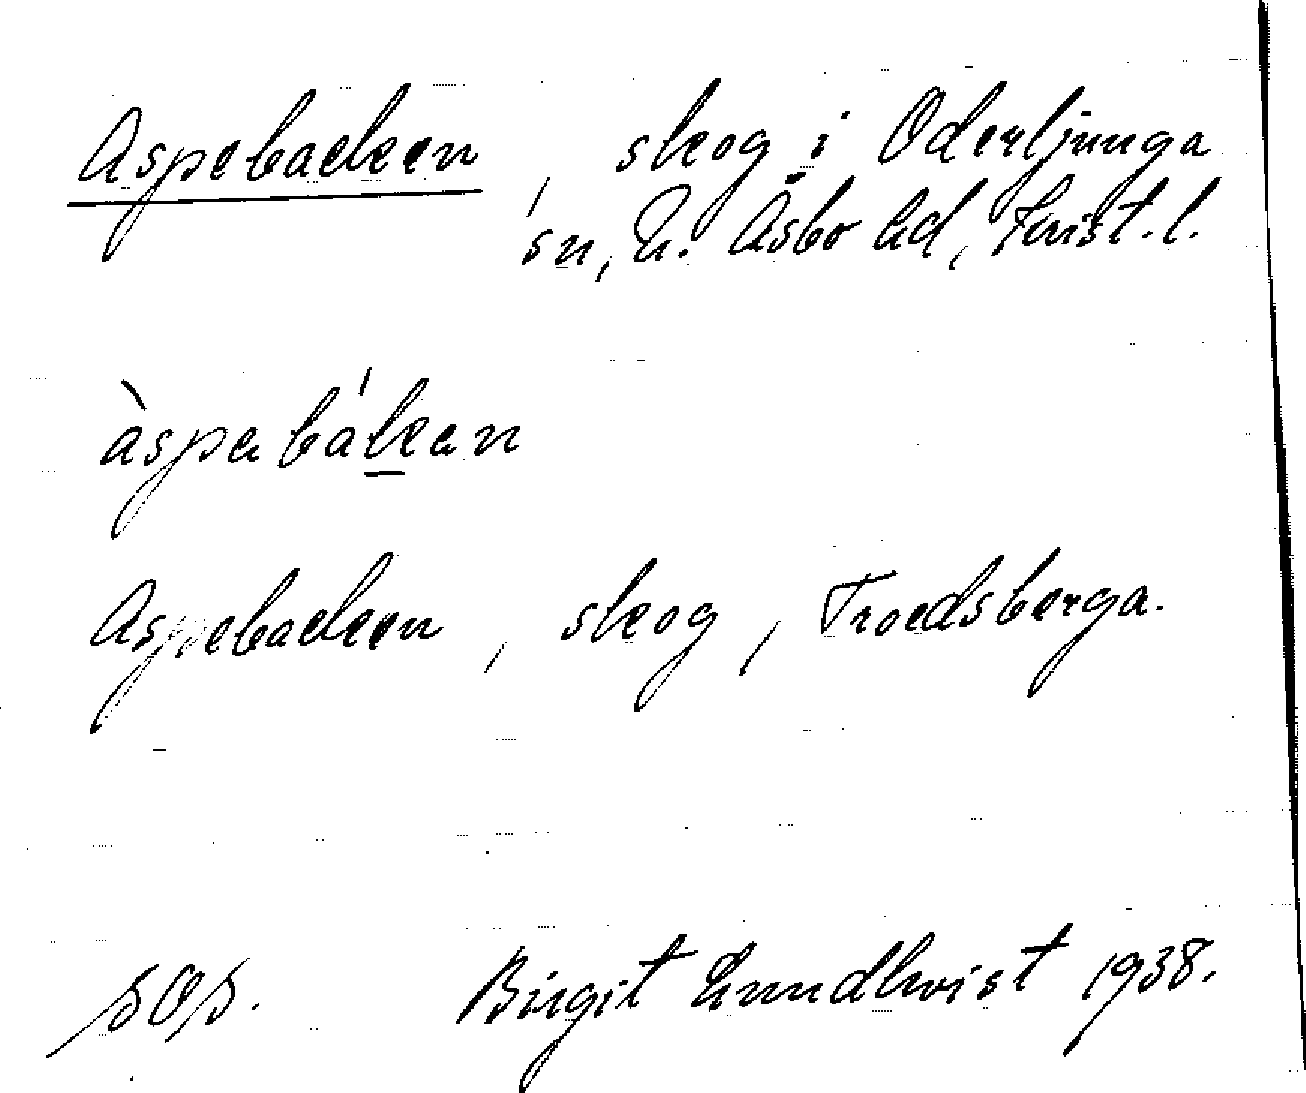 Aspebacken, skog i Oderljunga
sn, N. Åsbo hd, Krist. l.
àspabákan
Aspebacken, skog, Troedsberga.
Birgit Lundkvist 1938.